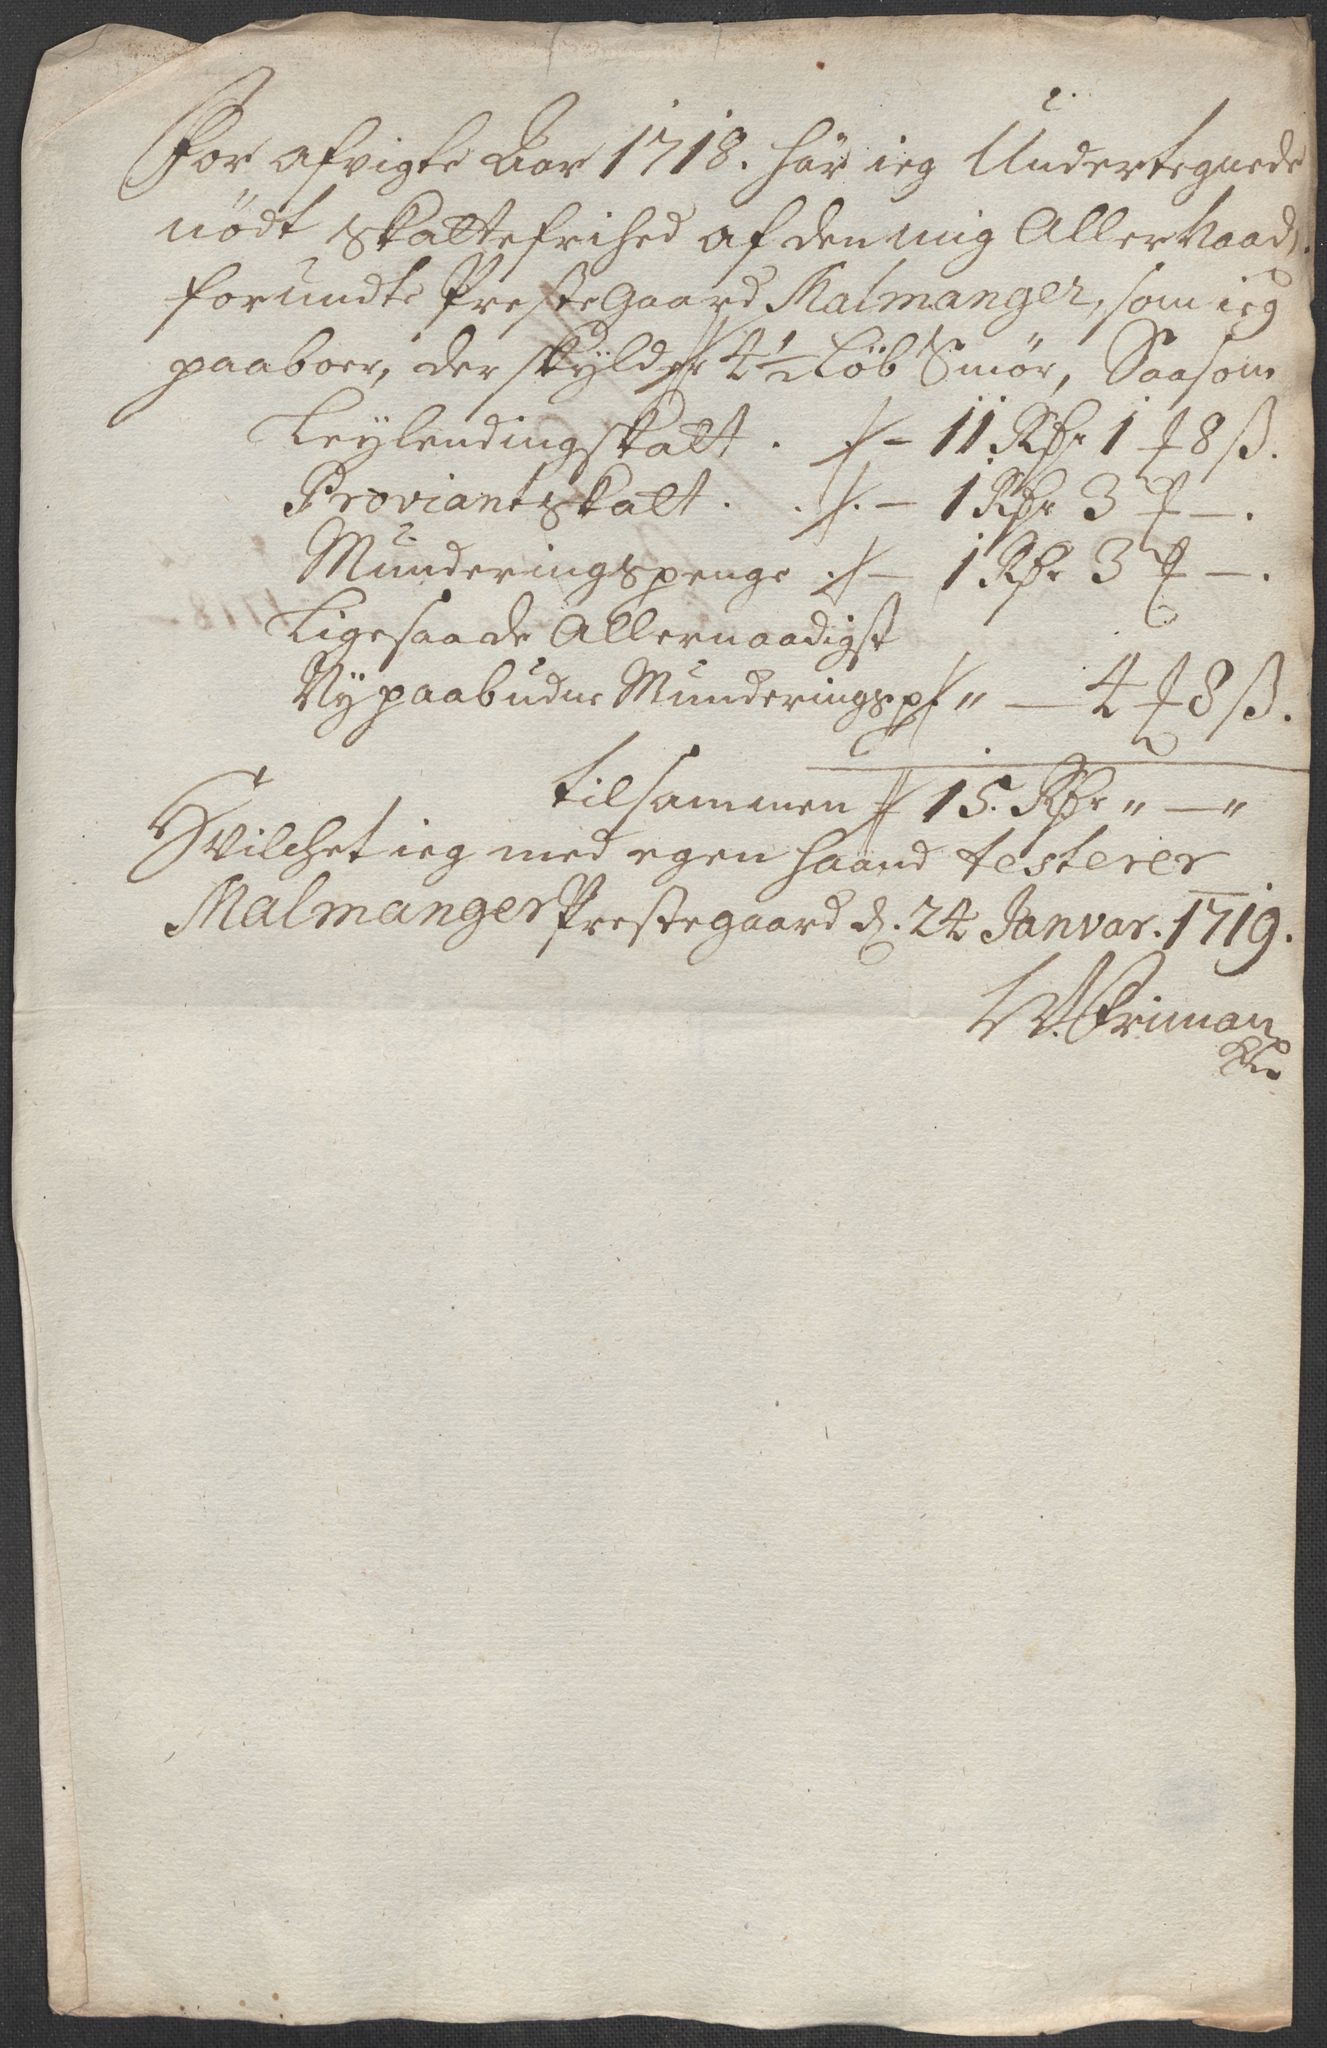 For afvigte Aar 1718. har ieg Undertegnede
nödt skattefrihed af den mig Allernaad.
forundte PresteGaard Malmanger, som ieg
paaboer, der skylder 4 1/2 Löb Smör, Saasom
Leylendingskatt . 11 Rdr 1 ₰ 8 ß.
Proviantskatt . . 1 Rdr 3 ₰ —.
Munderingspenge . 1 Rdr 3 ₰ —.
Ligesaa de Allernaadigst
Ny paabudne Munderingsp " — 4 ₰ 8 ß.
tilsammen 15. Rdr " — "
Hvilchet ieg med egen haand testerer
Malmanger Prestegaard d. 24 Janvar. 1719.
W. Friman